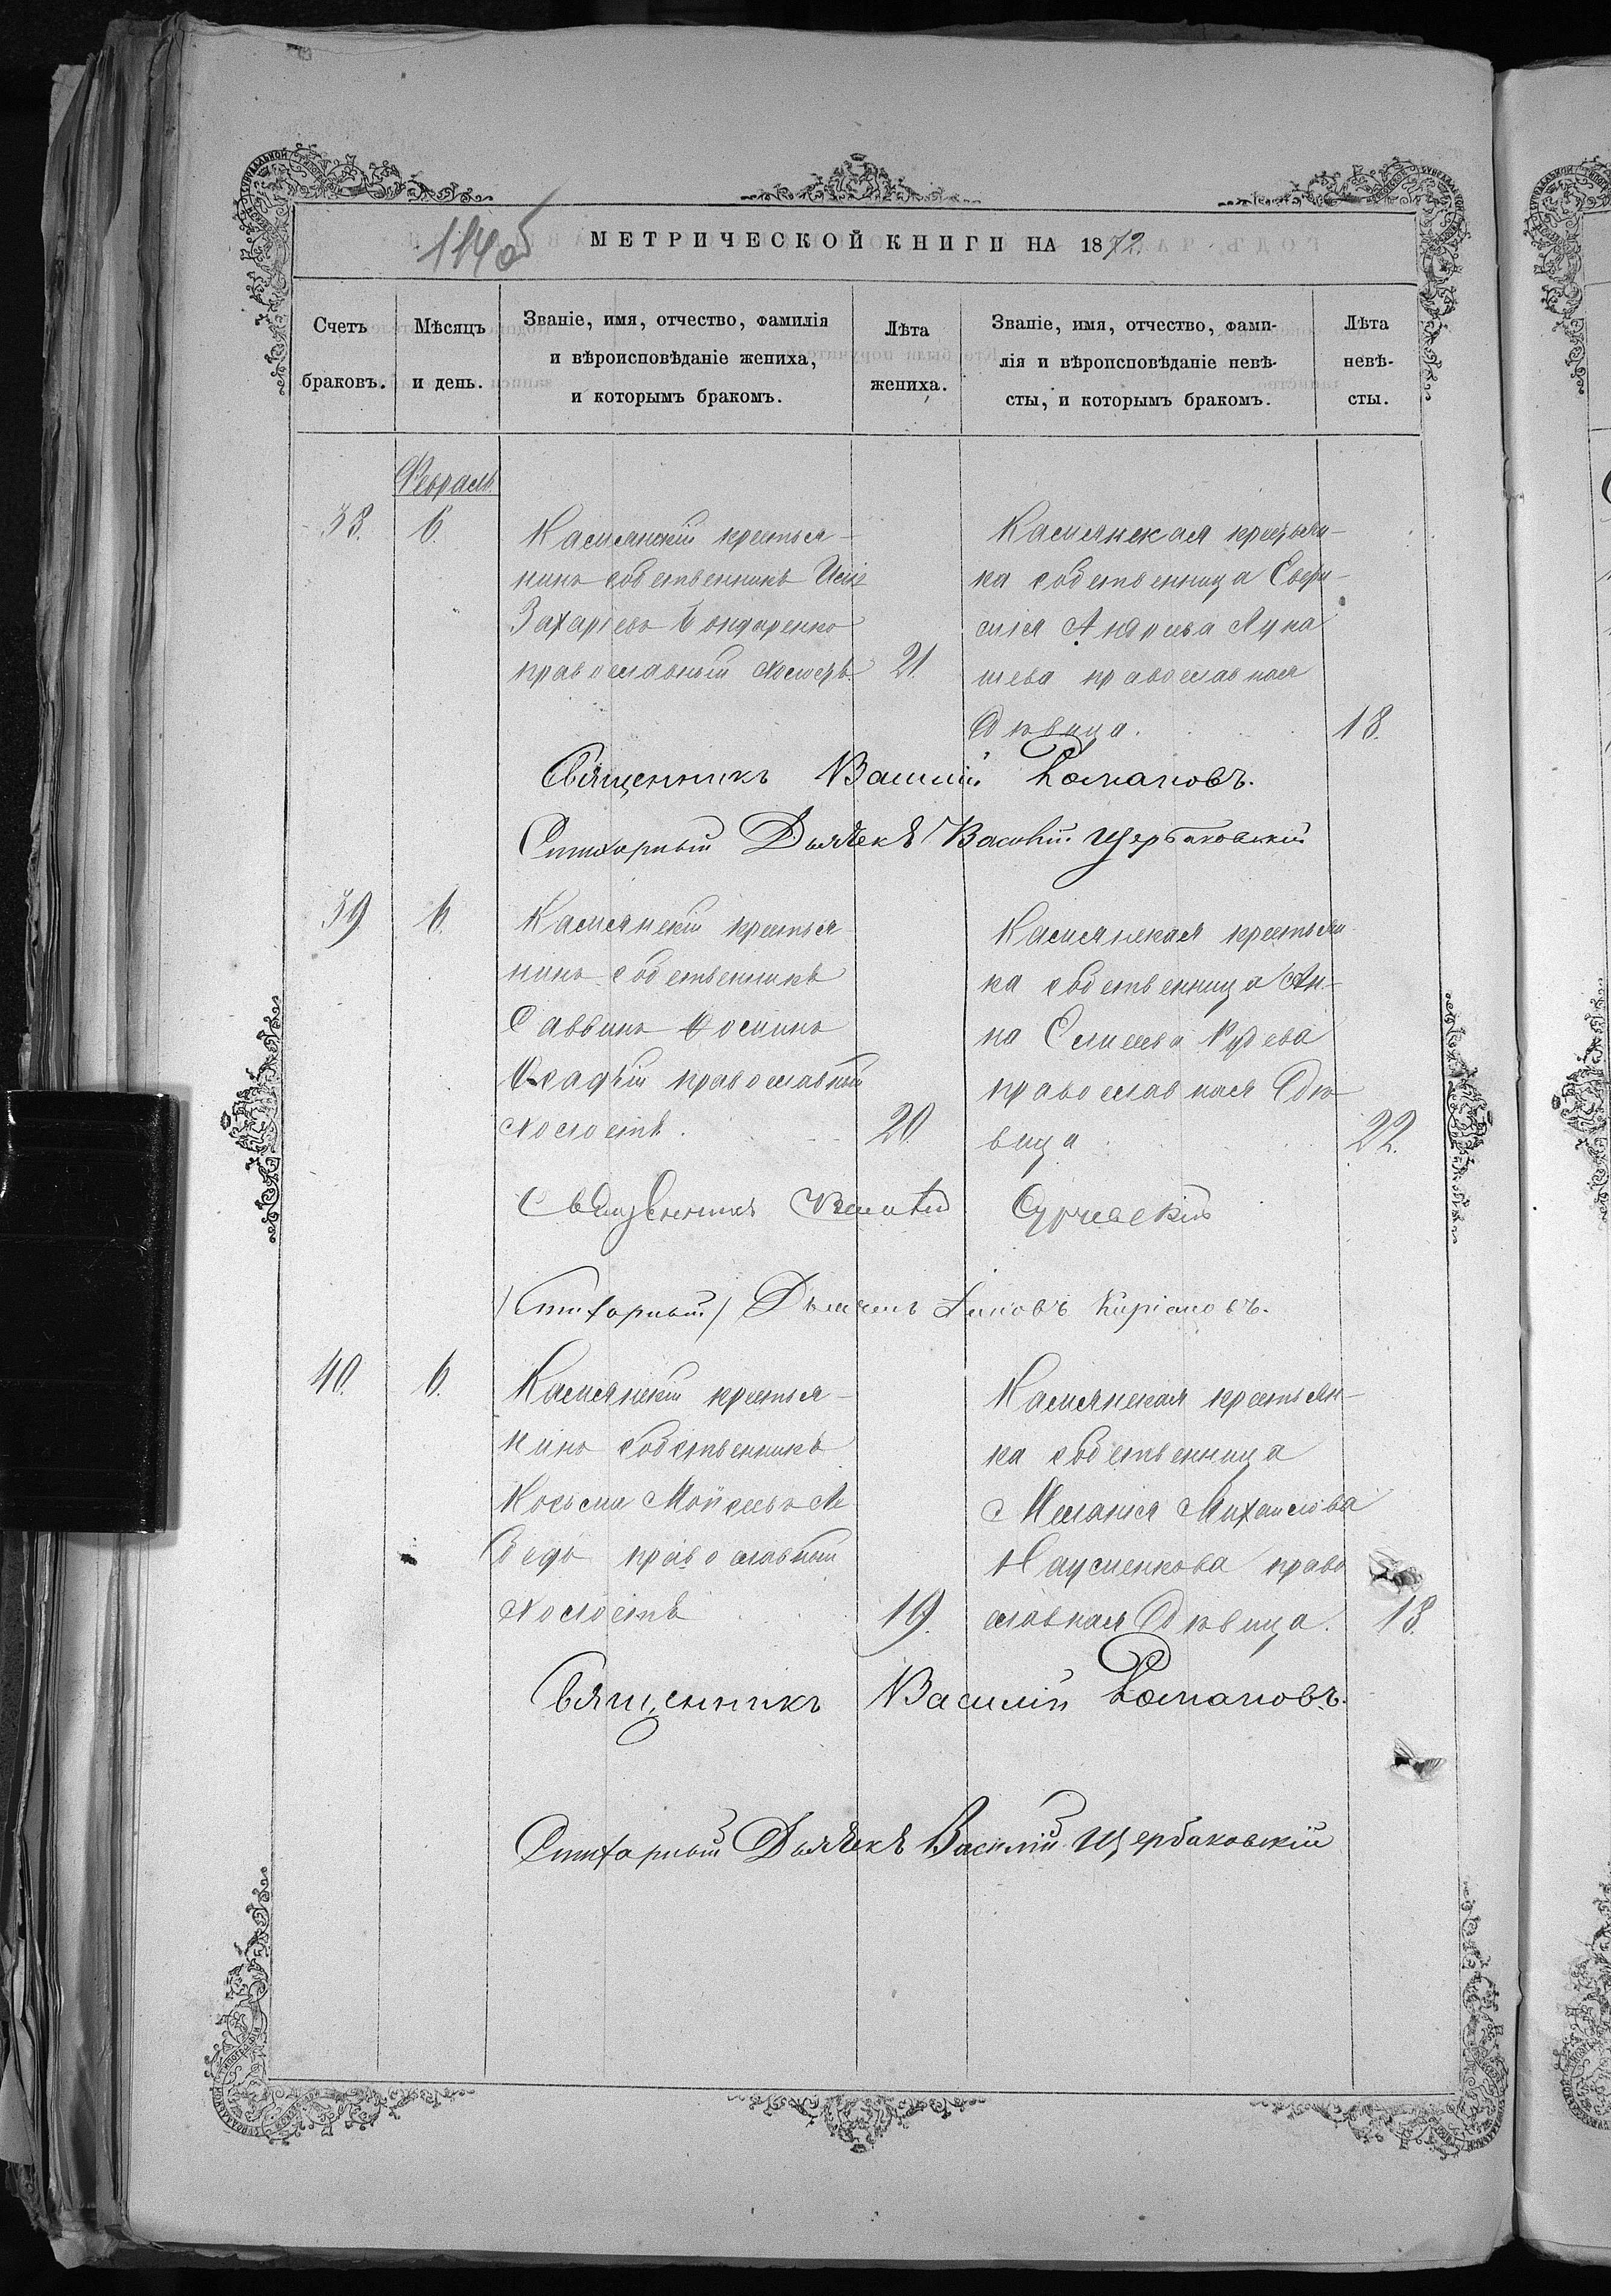 114об
МЕТРИЧЕСКОЙ КНИГИ НА 1872.
Счетъ браковъ.
Мѣсяцъ и день.
Званіе, имя, отчество, фамилія
и вѣроисповѣданіе жениха,
и которымъ бракомъ.
Лѣта
жениха.
Званіе, имя, отчество, фами-
лія и вѣроисповѣданіе невѣ-
сты, и которымъ бракомъ.
Лѣта
невѣ-
сты.
Февраль.
38. 6.
Камянскій крестья-
нинъ собственникъ
Захаріевъ Бондаренко
православный холостъ 21.
Камянская крестьян-
ка собственница Евфи-
мія Андреева Лука
шева православная
дѣвица. 18.
Священникъ Василій Романовъ.
Стихарный Дьячекъ Василій Щербаковскій
39. 6.
Камянскій крестья
нинъ собственникъ
Саввинъ
православный
холостъ. 20.
Камянская крестьян
ка собственница Ан-
на Елисеева
православная дѣ-
вица 22.
Священникъ
(Стихарный) Дьячекъ Іаковъ Киріаковъ.
40. 6.
Камянскій крестья-
нинъ собственникъ
Косьма Мойсеевъ Ле
бедь православный
холостъ 19.
Камянская крестьян-
ка собственница
Меланія Михаилова
Науменкова право
славная дѣвица. 18.
Священникъ Василій Романовъ.
Стихарный Дьячекъ Василій Щербаковскій